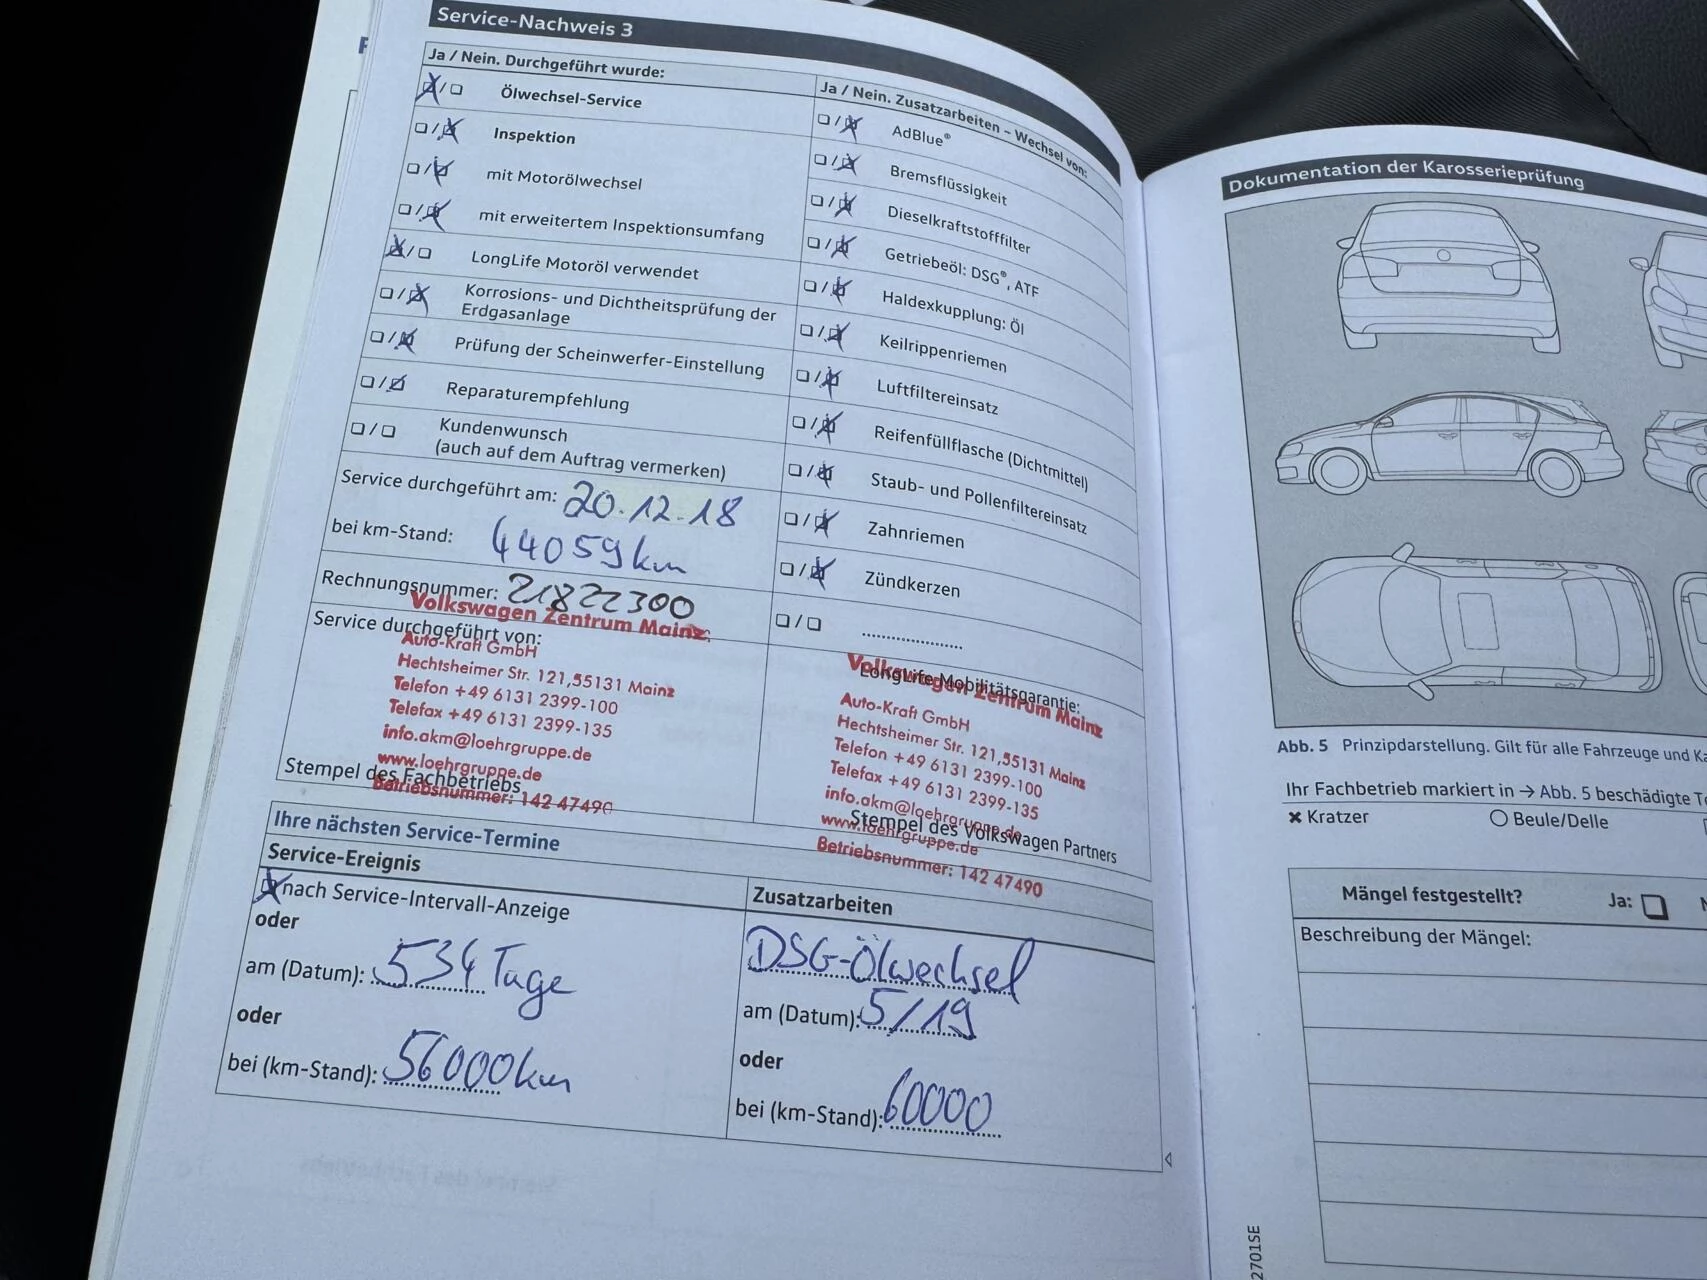 Service-Nachweis 3
Ja / Nein. Durchgeführt wurde:
Ölwechsel-Service
Inspektion
mit Motorölwechsel
mit erweitertem Inspektionsumfang
LongLife Motoröl verwendet
Korrosions- und Dichtheitsprüfung der
Erdgasanlage
Prüfung der Scheinwerfer-Einstellung
Reparaturempfehlung
Kundenwunsch
(auch auf dem Auftrag vermerken)
Service durchgeführt am: 20.12.18
bei km-Stand: 44059 km
Rechnungsnummer: 21822300
Service durchgeführt von:
Volkswagen Zentrum Mainz
Auto-Kraft GmbH
Hechtsheimer Str. 121,55131 Mainz
Telefon +49 6131 2399-100
Telefax +49 6131 2399-135
info.akm@loehrgruppe.de
www.loehrgruppe.de
Betriebsnummer: 142 47490
Stempel des Fachbetriebs
Ja / Nein. Zusatzarbeiten – Wechsel von:
AdBlue®
Bremsflüssigkeit
Dieselkraftstofffilter
Getriebeöl: DSG®, ATF
Haldexkupplung: Öl
Keilrippenriemen
Luftfiltereinsatz
Reifenfüllflasche (Dichtmittel)
Staub- und Pollenfiltereinsatz
Zahnriemen
Zündkerzen
....................
LongLife Mobilitätsgarantie:
Volkswagen Zentrum Mainz
Auto-Kraft GmbH
Hechtsheimer Str. 121,55131 Mainz
Telefon +49 6131 2399-100
Telefax +49 6131 2399-135
info.akm@loehrgruppe.de
www.loehrgruppe.de
Betriebsnummer: 142 47490
Stempel des Volkswagen Partners
Ihre nächsten Service-Termine
Service-Ereignis
nach Service-Intervall-Anzeige
oder
am (Datum): 534 Tage
oder
bei (km-Stand): 56000 km
Zusatzarbeiten
DSG-Ölwechsel
am (Datum): 5/19
oder
bei (km-Stand): 60000
Dokumentation der Karosserieprüfung
Abb. 5 Prinzipdarstellung. Gilt für alle Fahrzeuge und
Ihr Fachbetrieb markiert in → Abb. 5 beschädigte
× Kratzer
Beule/Delle
Mängel festgestellt?
Ja:
Beschreibung der Mängel:
2701SE